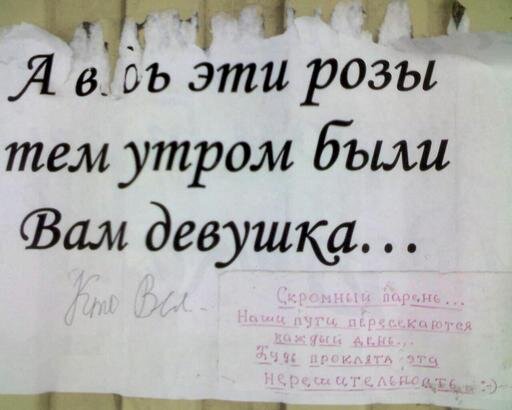 А ведь эти розы
тем утром были
Вам девушка...
Кто Вы
Скромный парень...
Наши пути пересекаются
каждый день...
Будь проклята эта
нерешительность :-)